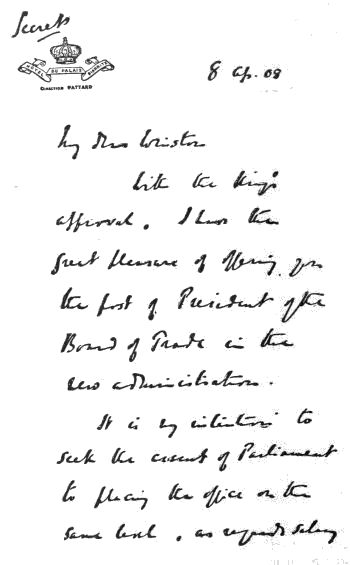 Secret
HOTEL DU PALAIS BIARRITZ
DIRECTION PATTARD
8 Ap. 08
My dear Winston
With the King's
approval, I have the
great pleasure of offering you
the post of President of the
Board of Trade in the
new administration.
It is my intention to
seek the assent of Parliament
to placing the office on the
same level, as regards salary